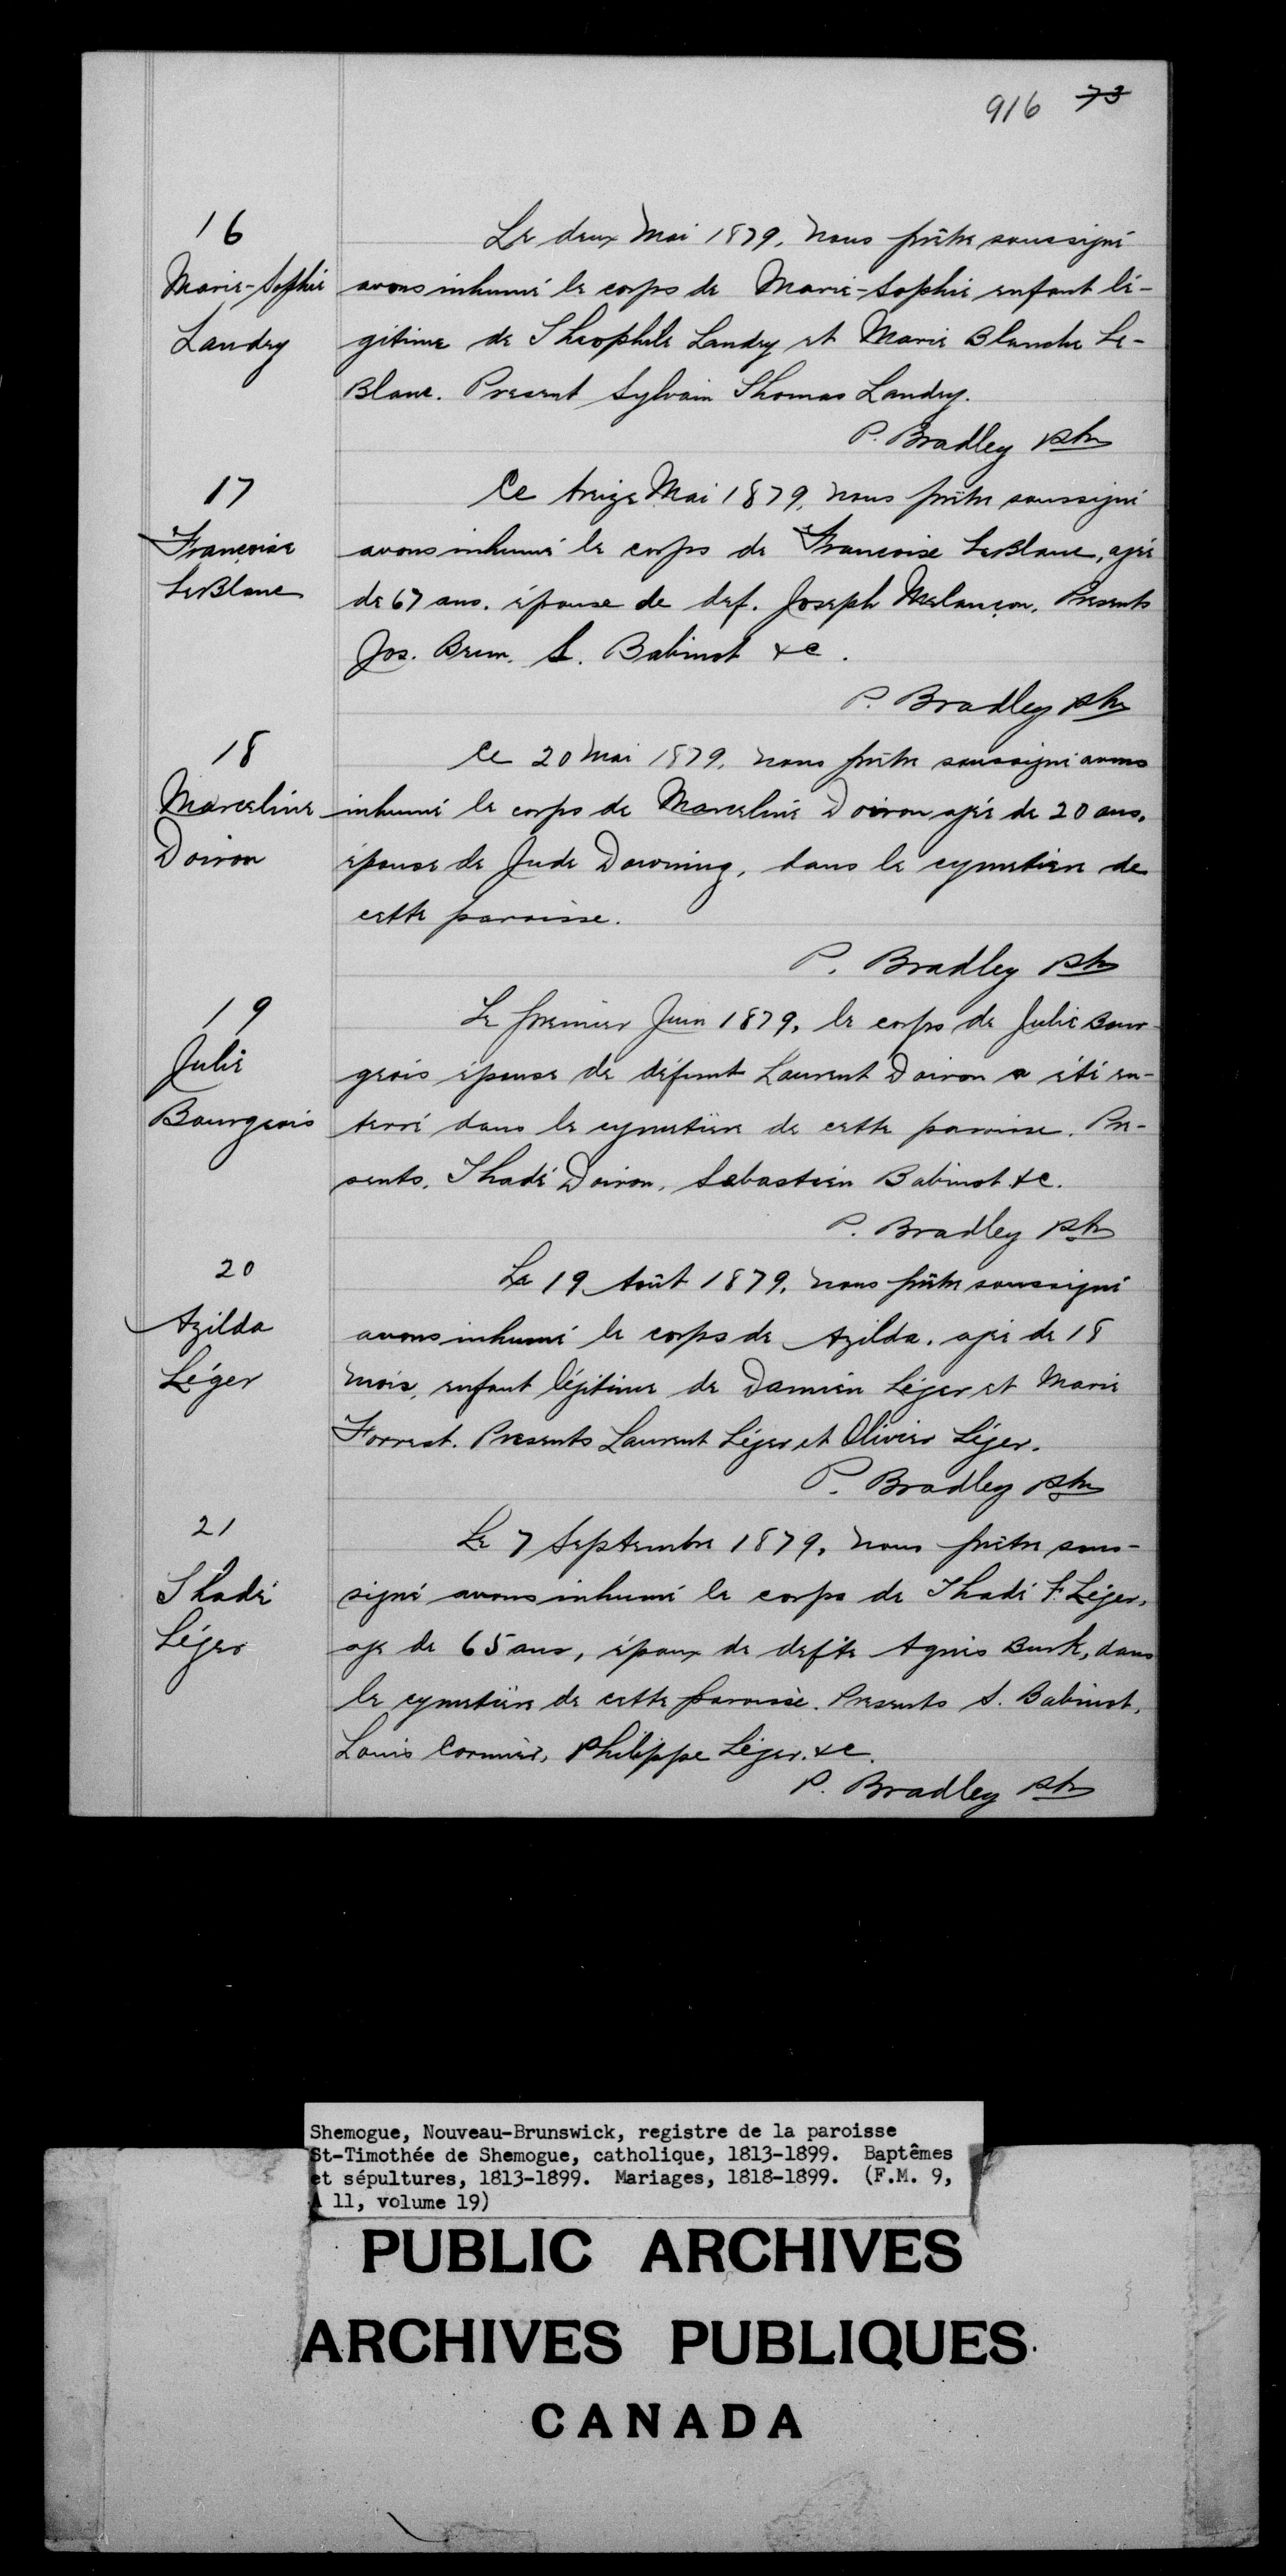 916 73
16
Marie-Sophie
Landry
Le deux Mai 1879, nous prêtre soussigné
avons inhumé le corps de Marie-Sophie enfant lé-
gitime de Théophile Landry et Marie Blanche Le-
Blanc. Present Sylvain Thomas Landry.
P. Bradley Ptre
17
Françoise
LeBlanc
Ce treize Mai 1879, nous prêtre soussigné
avons inhumé le corps de Francoise LeBlanc, agée
de 67 ans. épouse de def. Joseph Melançon. Presents
Jos. Brun, S. Babinot &c.
P. Bradley Ptre
18
Marceline
Doiron
Ce 20 Mai 1879, nous prêtre soussigné avons
inhumé le corps de Marceline Doiron agée de 20 ans.
épouse de Jude Downing, dans le cymetière de
cette paroisse.
P. Bradley Ptre
19
Julie
Bourgeois
Le premier Juin 1879, le corps de Julie Bour-
geois épouse de défunt Laurent Doiron a été en-
terré dans le cymetière de cette paroisse. Pre-
sents, Thadé Doiron, Sebastien Babinot &c.
P. Bradley Ptre
20
Azilda
Léger
Le 19 Août 1879, nous prêtre soussigné
avons inhumé le corps de Azilda, agée de 18
mois, enfant légitime de Damien Léger et Marie
Forrest. Presents Laurent Léger et Olivier Léger.
P. Bradley Ptre
21
Thadé
Léger
Le 7 Septembre 1879, nous prêtre sous-
signé avons inhumé le corps de Thadé F. Léger,
age de 65 ans, époux de defte Agnès Burk, dans
le cymetière de cette paroisse. Presents S. Babinot,
Louis Cormier, Philippe Léger. &c.
P. Bradley Ptre
Shemogue, Nouveau-Brunswick, registre de la paroisse
St-Timothée de Shemogue, catholique, 1813-1899. Baptêmes
et sépultures, 1813-1899. Mariages, 1818-1899. (F.M. 9,
A 11, volume 19)
PUBLIC ARCHIVES
ARCHIVES PUBLIQUES
CANADA